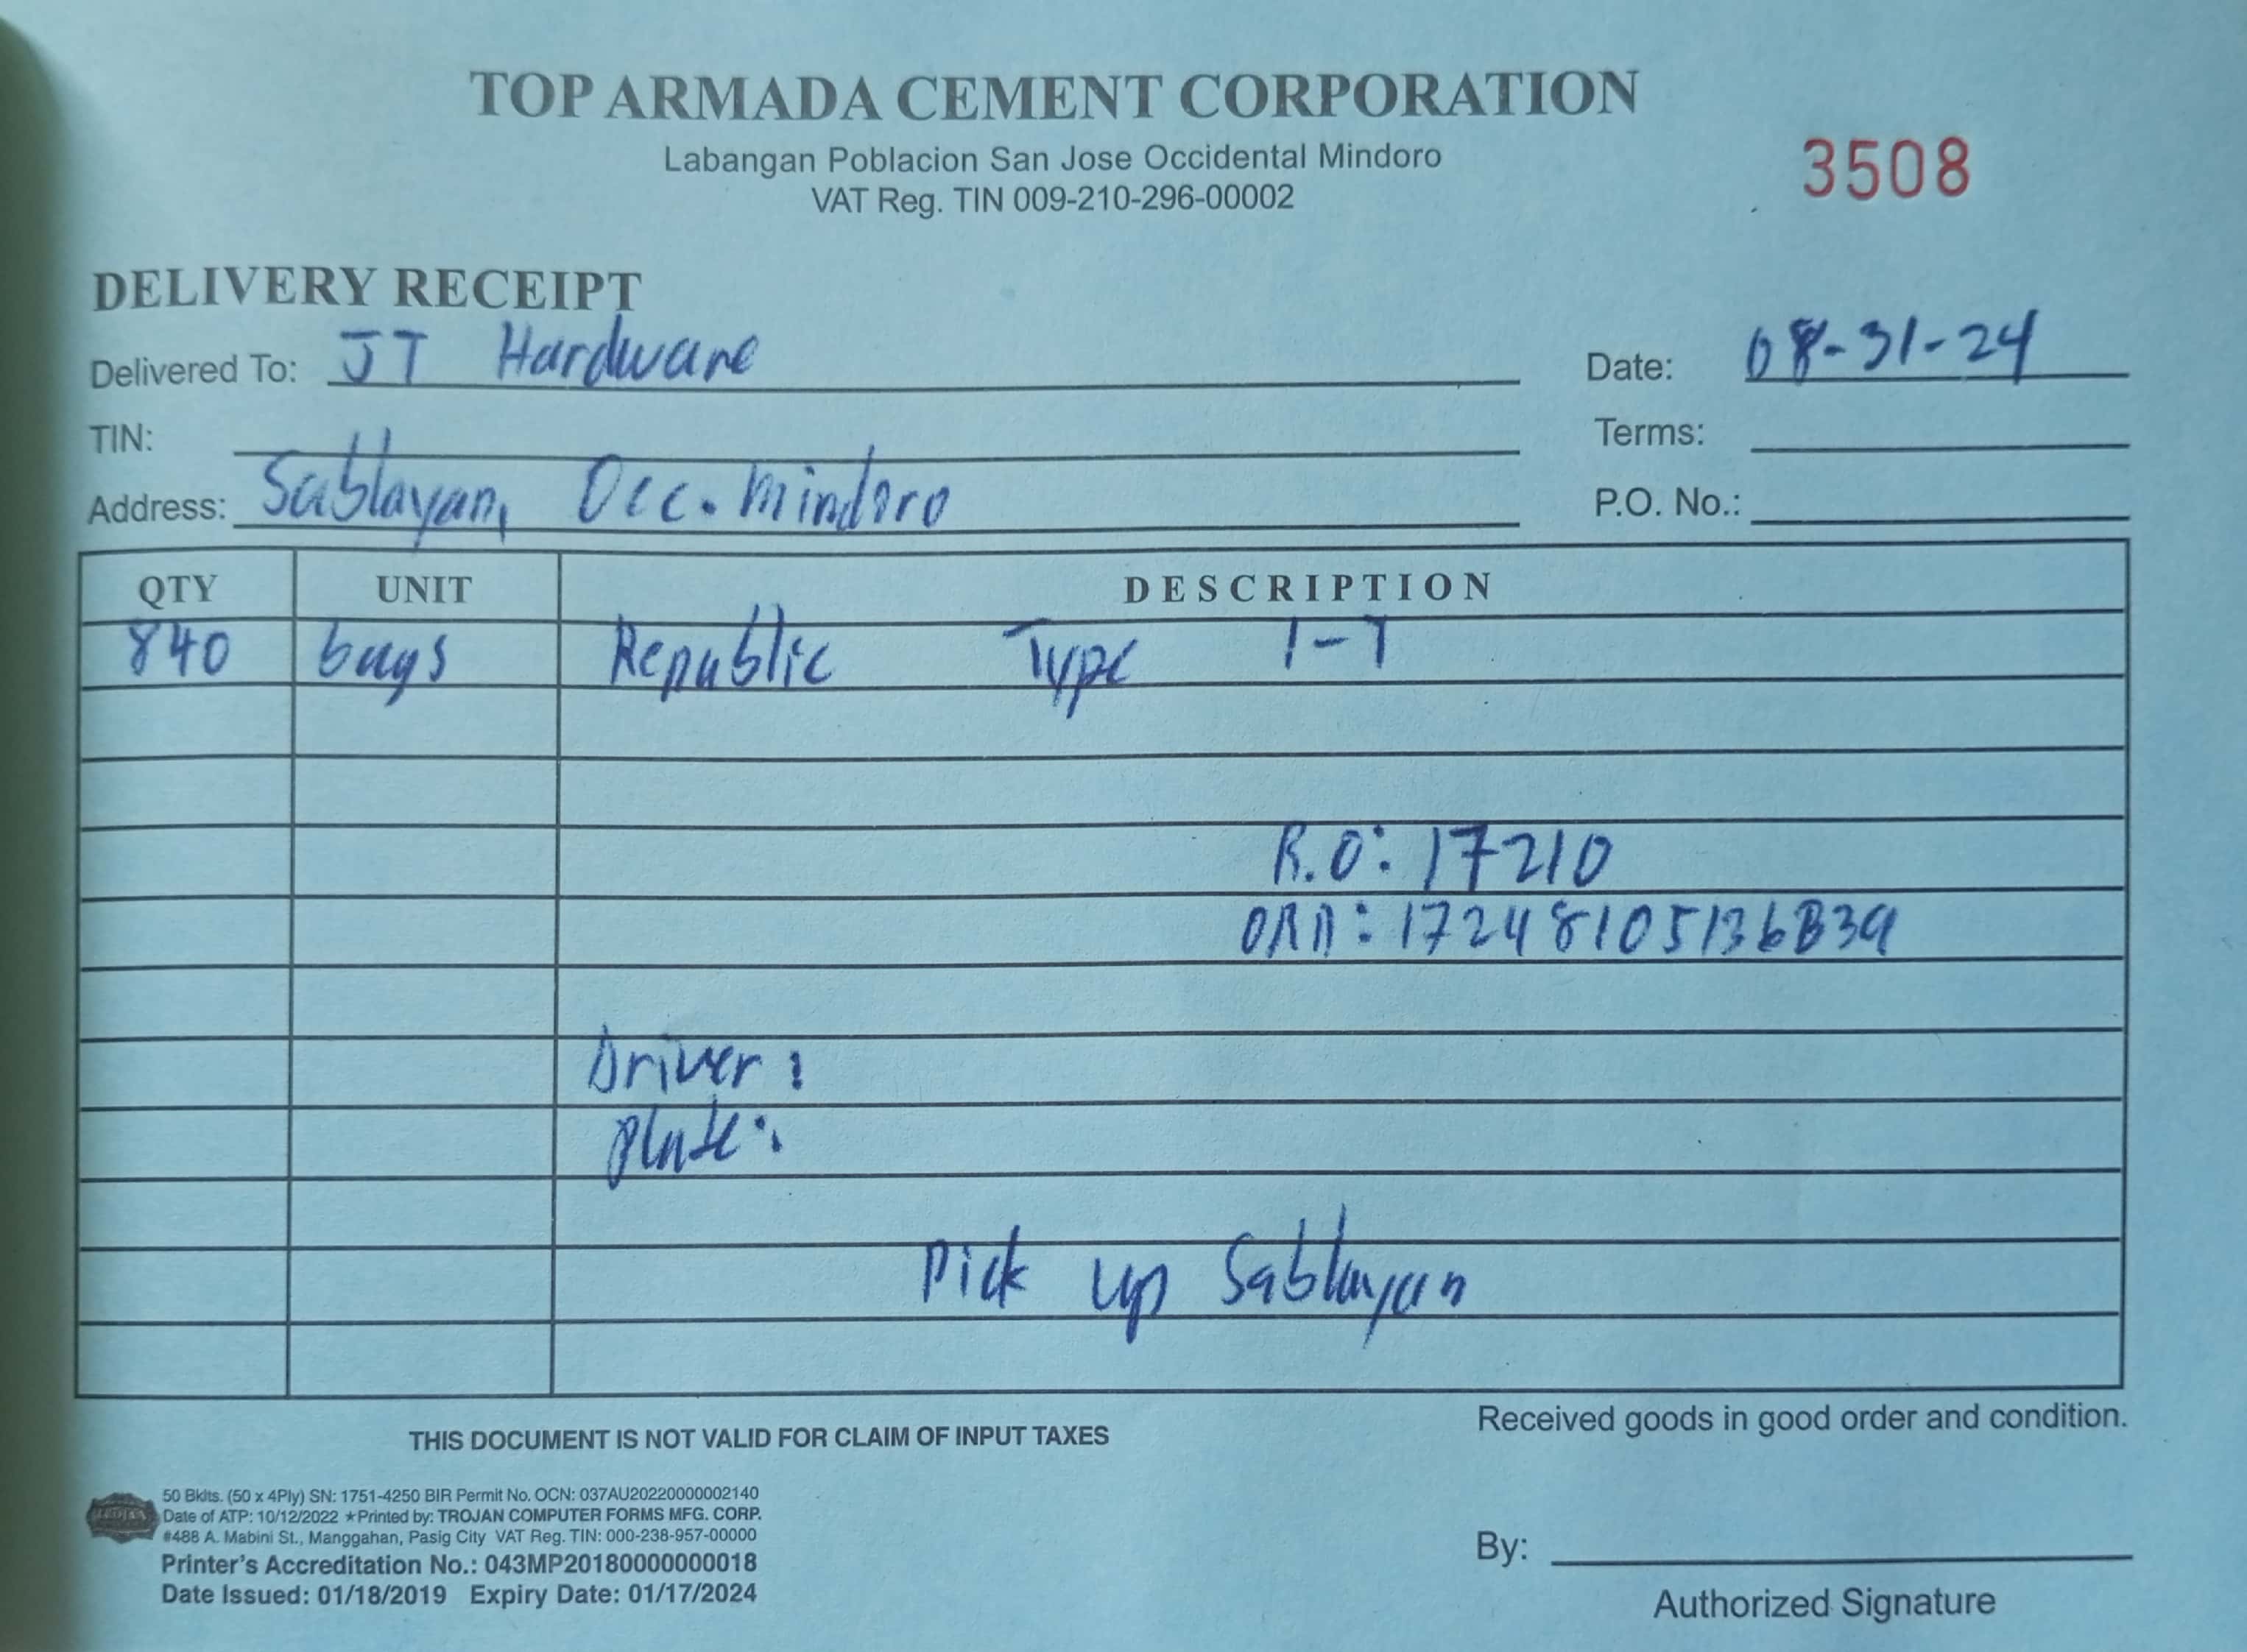 TOP ARMADA CEMENT CORPORATION
Labangan Poblacion San Jose Occidental Mindoro
VAT Reg. TIN 009-210-296-00002
3508
DELIVERY RECEIPT
Delivered To: JT Hardware
Date: 08-31-24
TIN:
Terms:
Address: Sablayan, Occ. Mindoro
P.O. No.:
QTY UNIT DESCRIPTION
840 bags Republic Type 1-T
R.O: 17210
17248105136B39
Driver:
Plate:
Pick up Sablayan
THIS DOCUMENT IS NOT VALID FOR CLAIM OF INPUT TAXES
Received goods in good order and condition.
50 Bklts. (50 x 4Ply) SN: 1751-4250 BIR Permit No. OCN: 037AU20220000002140
Date of ATP: 10/12/2022 ★Printed by: TROJAN COMPUTER FORMS MFG. CORP.
#488 A. Mabini St., Manggahan, Pasig City VAT Reg. TIN: 000-238-957-00000
Printer's Accreditation No.: 043MP20180000000018
Date Issued: 01/18/2019 Expiry Date: 01/17/2024
By:
Authorized Signature